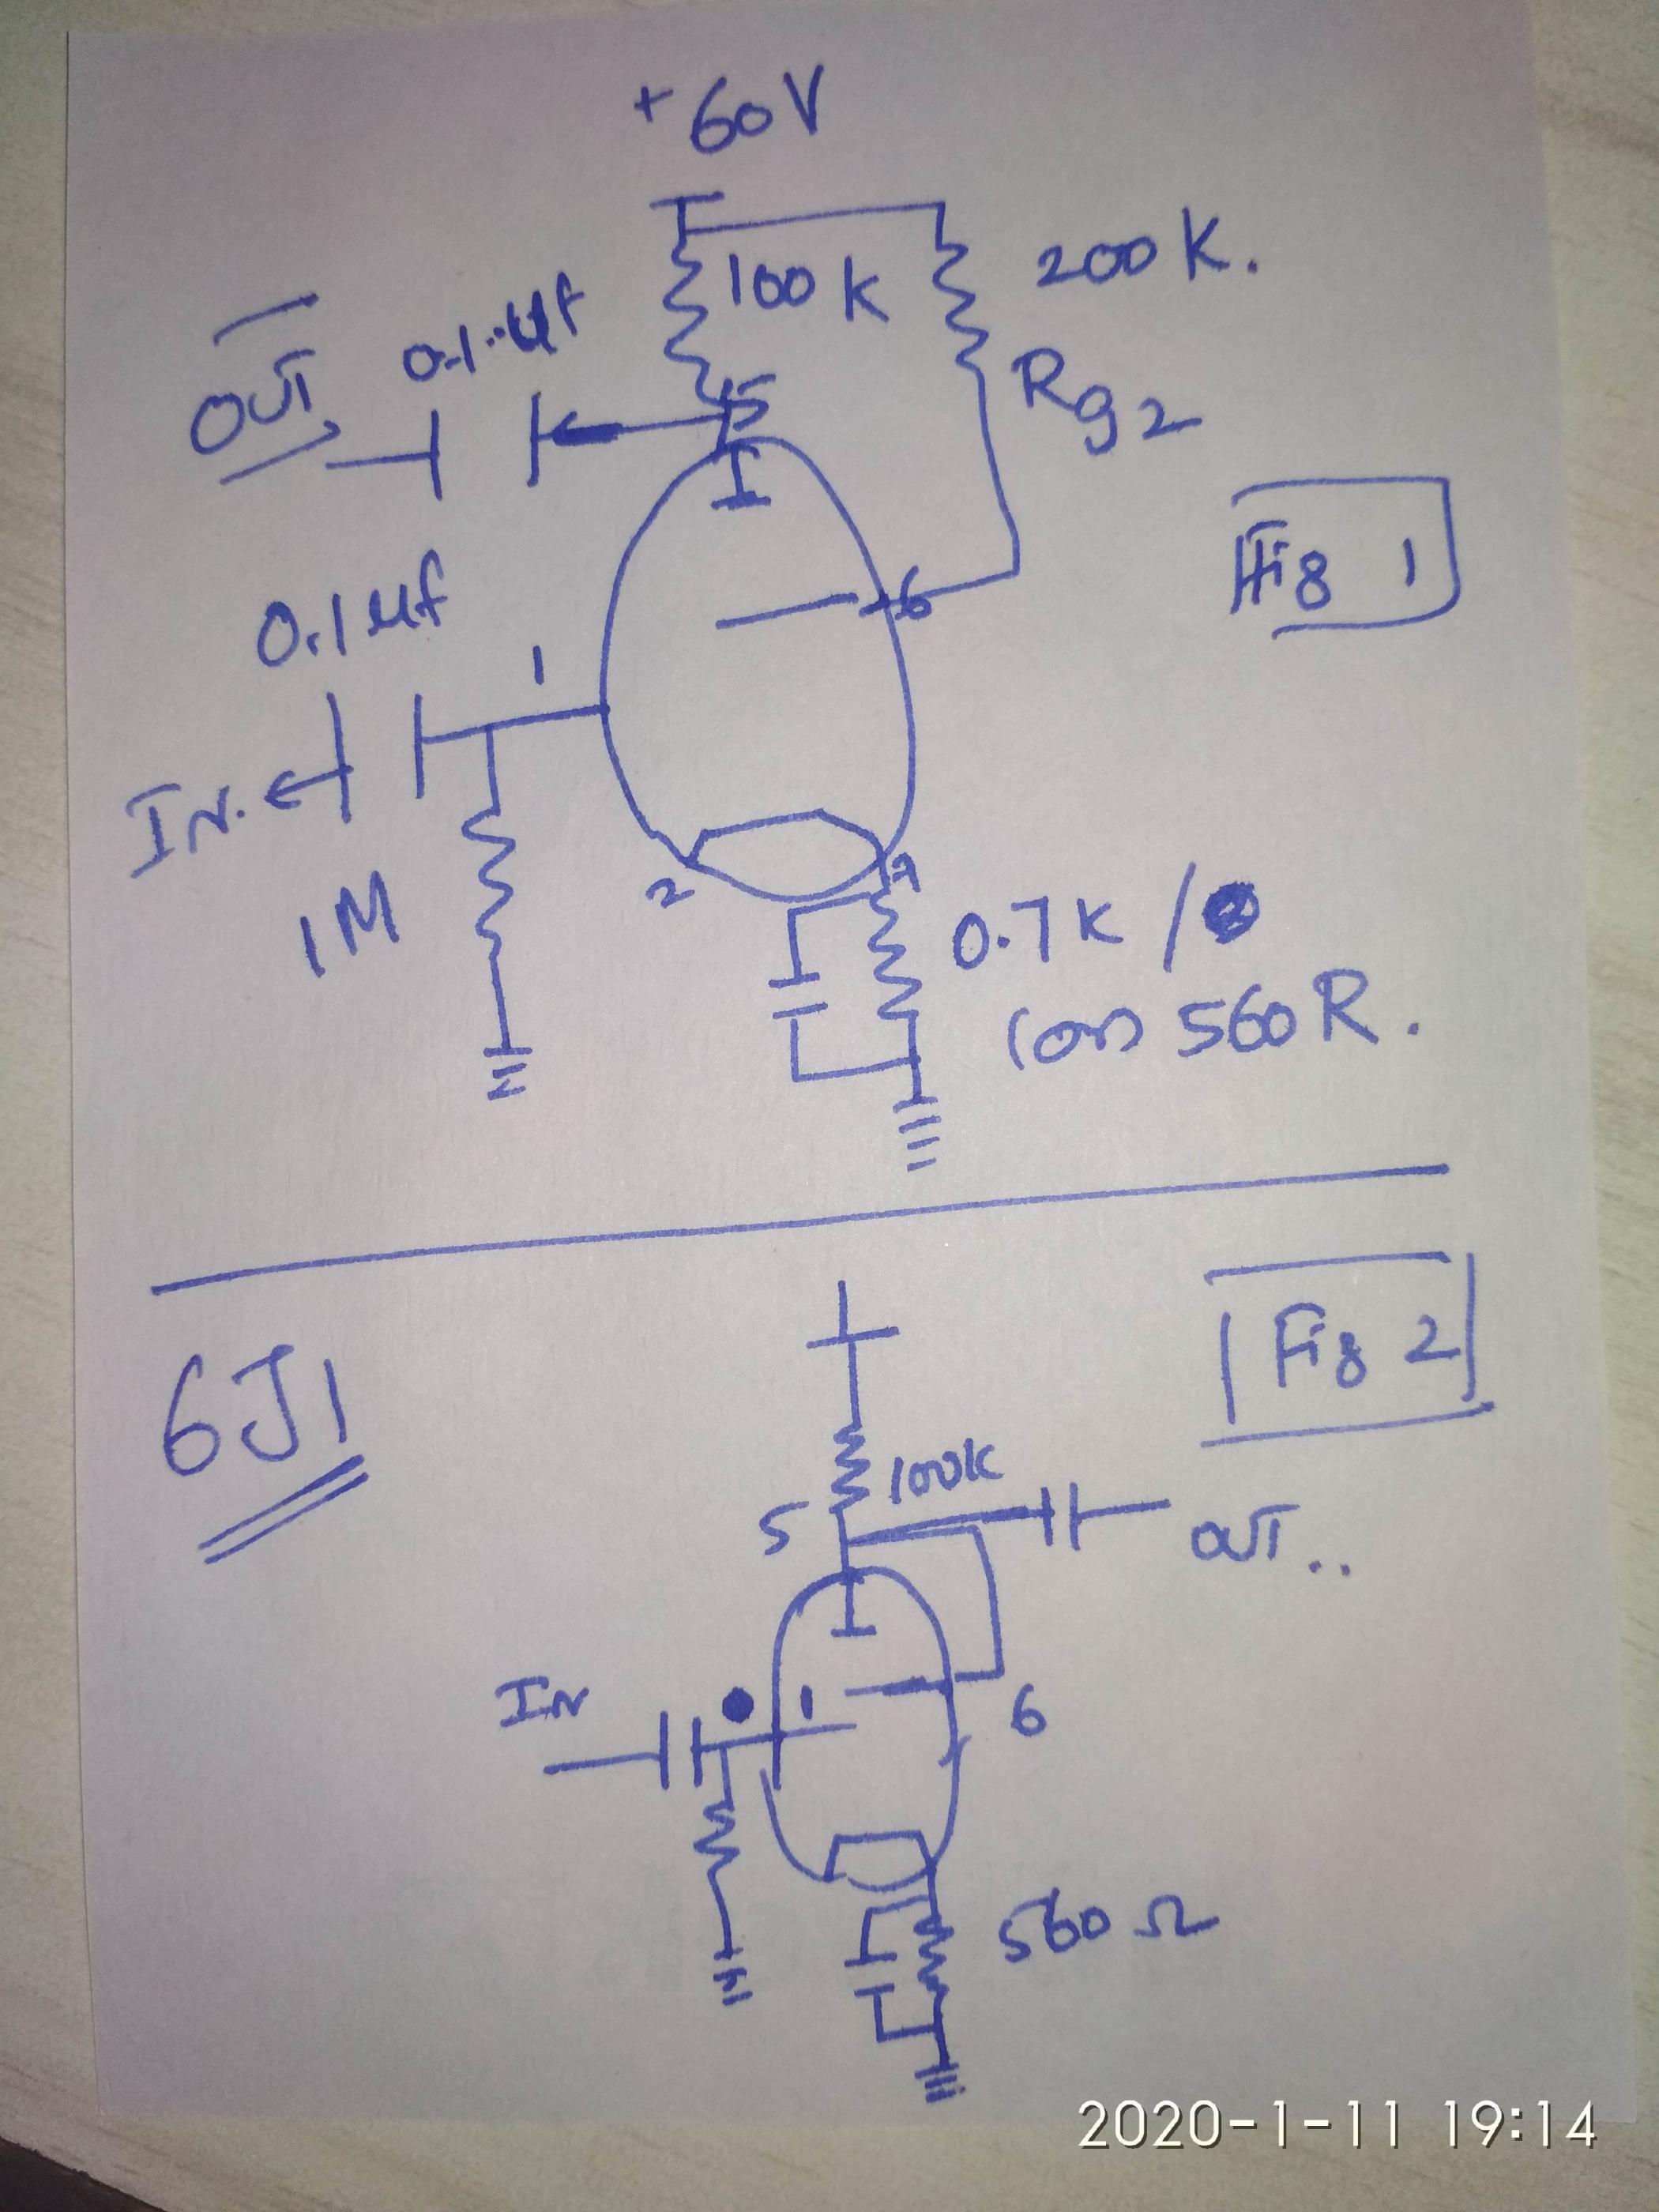 +60V
100K
200K.
0.1μf
OUT
5
Rg2
Fig 1
6
0.1μf
1
In.
1M
2
7
0.7K /
(or) 560R.
6J1
Fig 2
100K
5
OUT..
In
1
6
560Ω
2020-1-11 19:14